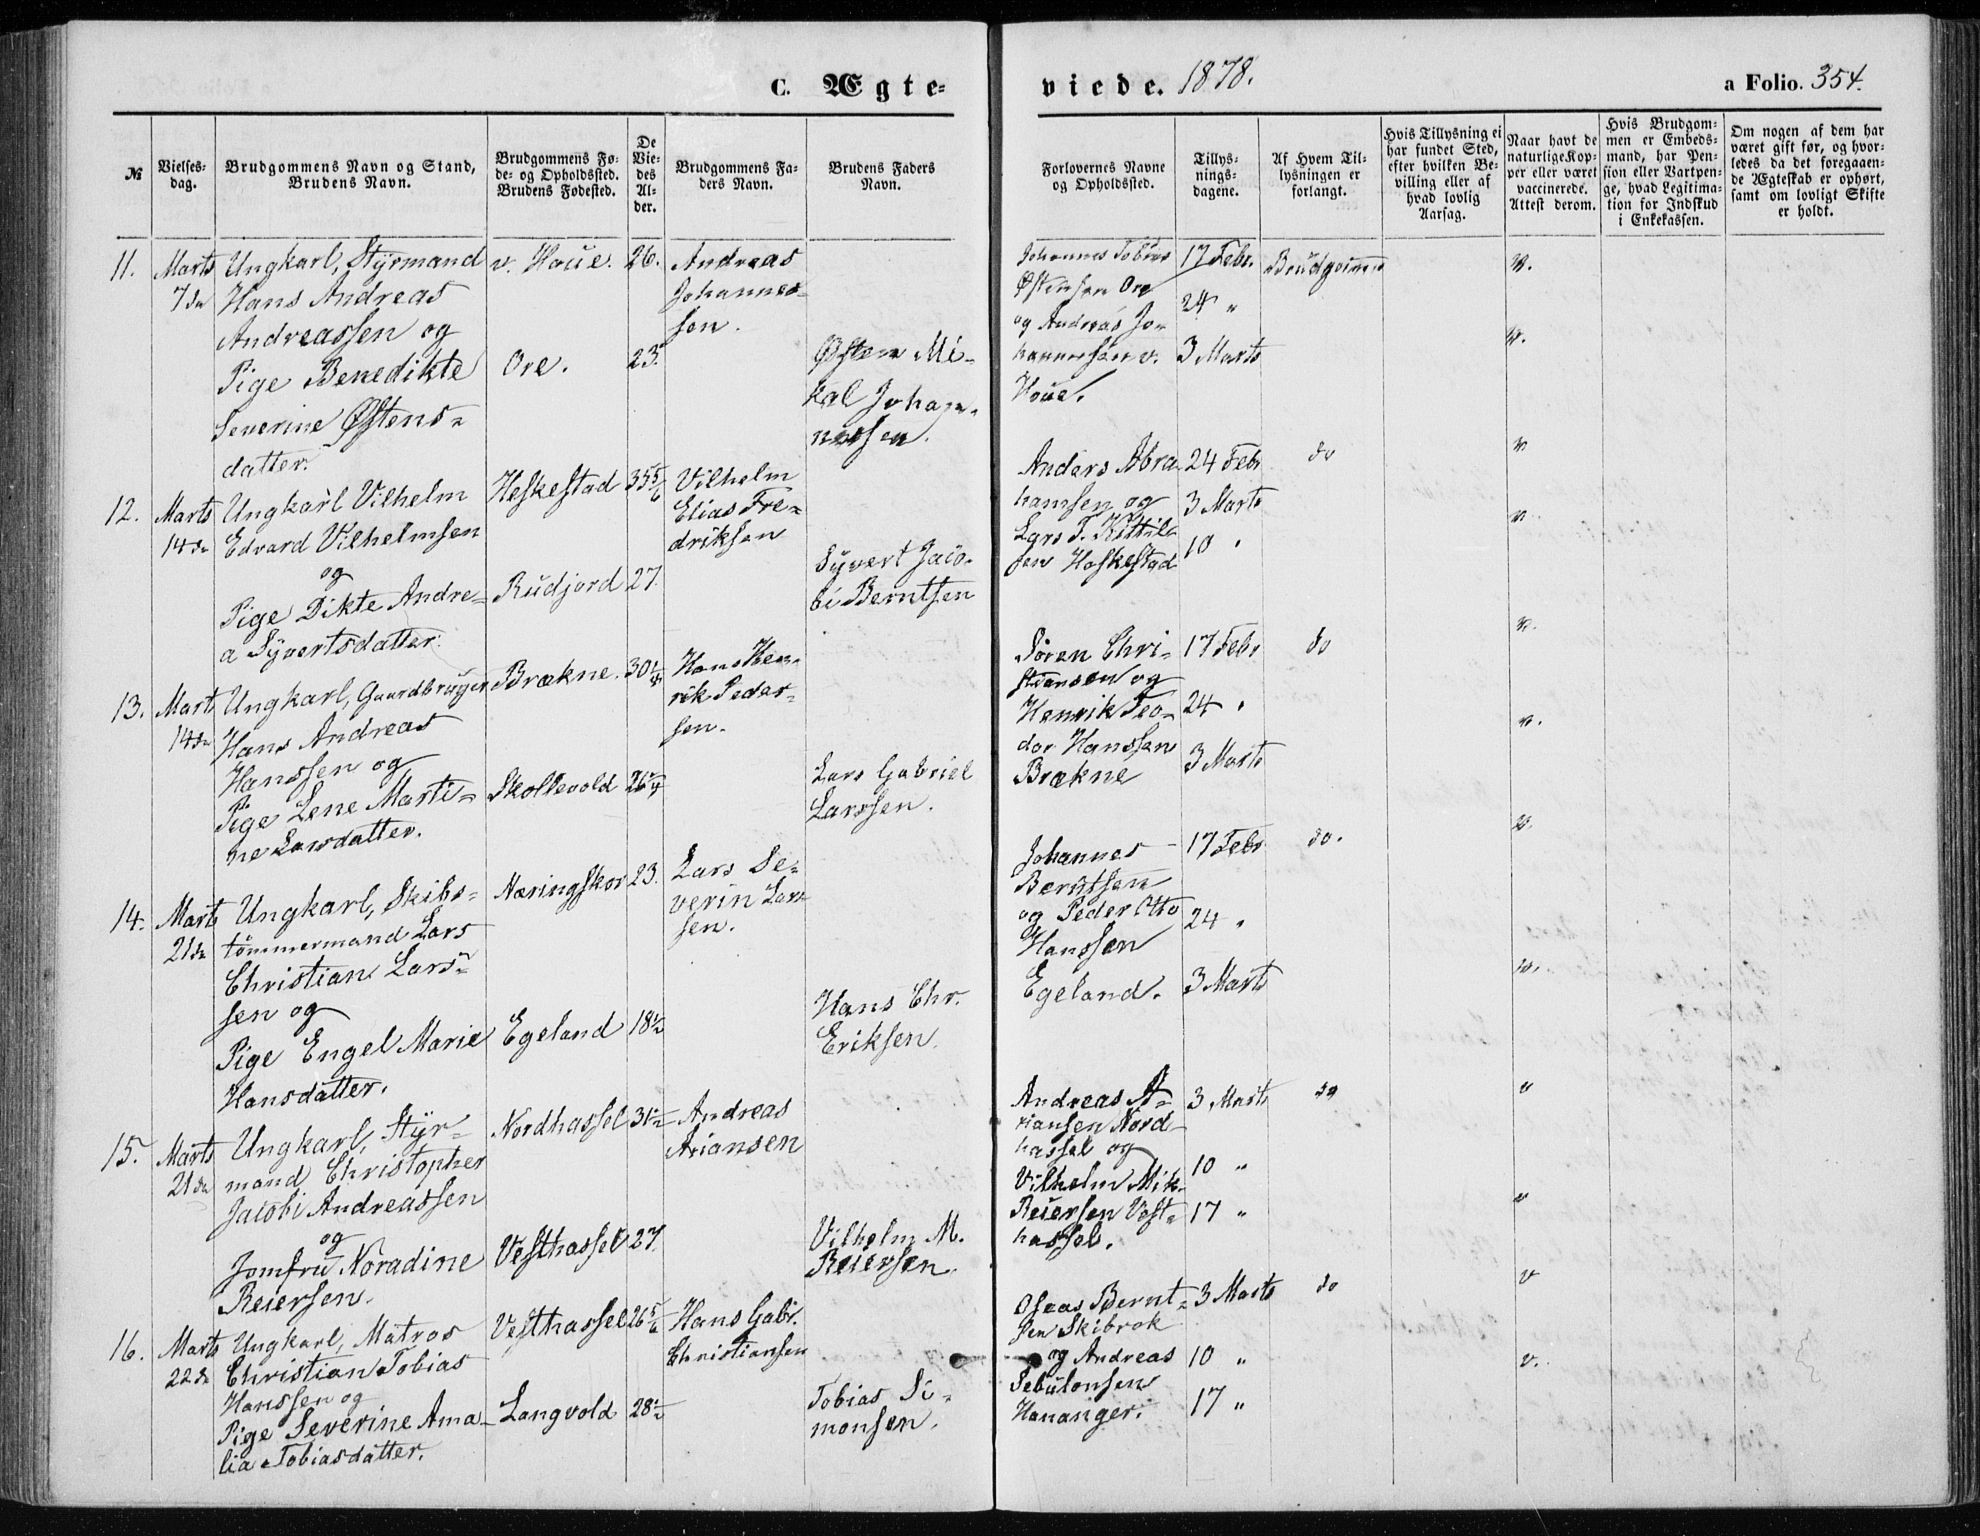 C. Ægte-
viede. 1878.
a Folio. 354.
№
Vielses-
dag.
Brudgommens Navn og Stand,
Brudens Navn.
Brudgommens Fø-
de- og Opholdssted.
Brudens Fødested.
De
Vie-
des
Al-
der.
Brudgommens Fa-
ders Navn.
Brudens Faders
Navn.
Forlovernes Navne
og Opholdssted.
Tillys-
nings-
dagene.
Af Hvem Til-
lysningen er
forlangt.
Hvis Tillysning ei
har fundet Sted,
efter hvilken Be-
villing eller af
hvad lovlig
Aarsag.
Naar havt de
naturlige Kop-
per eller været
vaccinerede.
Attest derom.
Hvis Brudgom-
men er Embeds-
mand, har Pen-
sion eller Vartpen-
ge, hvad Legitima-
tion for Indskud
i Enkekassen.
Om nogen af dem har
været gift før, og hvor-
ledes da det foregaaen-
de Ægteskab er ophørt,
samt om lovligt Skifte
er holdt.
11.
Marts
7de
Ungkarl, Styrmand
Hans Andreas
Andreassen og
Pige Benedikte
Severine Østens-
datter.
v. Houe.
Ore.
26.
23.
Andreas
Johannes-
sen.
Østen Mi-
kal Johan-
nessen.
Johannes Tobias
Østensen Ore
og Andreas Jo-
hannessen v.
Houe.
17 Febr.
24 "
3 Marts
Brudgommen
v.
v.
12.
Marts
14de
Ungkarl Vilhelm
Edvard Vilhelmsen
og
Pige Dikte Andre-
a Syvertsdatter.
Heskestad
Rudjord
35 5/6
27.
Vilhelm
Elias Fre-
driksen
Syvert Jaco-
bi Berntsen
Anders Abra-
hamsen og
Lars T. Kittil-
sen Heskestad
24 Febr
3 Marts
10 "
do
v
v
13.
Marts
14de
Ungkarl, Gaardbruger
Hans Andreas
Hanssen og
Pige Lene Marti-
ne Larsdatter.
Brækne.
Skollevold
30 1/4
26 1/4
Hans Hen-
rik Peder-
sen.
Lars Gabriel
Larssen.
Søren Chri-
stiansen og
Henrik Teo-
dor Hanssen
Brækne
17 Febr
24 "
3 Marts
do
v.
v.
14.
Marts
21de
Ungkarl, Skibs-
tømmermand Lars
Christian Lars-
sen og
Pige Engel Marie
Hansdatter.
Næringskor
Egeland
23.
18 1/2
Lars Se-
verin Lars-
sen.
Hans Chr.
Eriksen.
Johannes
Berntsen
og Peder Otto
Hanssen
Egeland.
17 Febr
24 "
3 Marts
do.
v.
v.
15.
Marts
21de
Ungkarl, Styr-
mand Christopher
Jacobi Andreassen
og
Jomfru Noradine
Reiersen.
Nordhassel
Vesthassel
31 1/2
27.
Andreas
Ariansen
Vilhelm M.
Reiersen.
Andreas A-
riansen Nord-
hassel og
Vilhelm Mik.
Reiersen Vest-
hassel.
3 Marts
10 "
17 "
do
v
v
16.
Marts
22de
Ungkarl, Matros
Christian Tobias
Hanssen og
Pige Severine Ama-
lia Tobiasdatter.
Vesthassel
Langvold
26 5/6
28 1/2
Hans Gabr.
Christiansen
Tobias Si-
monsen.
Oseas Bernt-
sen Skibrok
og Andreas
Sebulonsen
Hananger.
3 Marts
10 "
17 "
do
v
v.